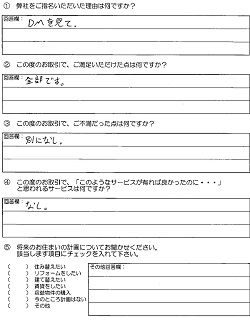 ① 弊社をご指名いただいた理由は何ですか？
回答欄：
DMを見て。
② この度のお取引で、ご満足いただけた点は何ですか？
回答欄：
全部です。
③ この度のお取引で、ご不満だった点は何ですか？
回答欄：
別になし。
④ この度のお取引で、「このようなサービスが有れば良かったのに・・・」
と思われるサービスは何ですか？
回答欄：
なし。
⑤ 将来のお住まいの計画についてお聞かせください。
該当します項目にチェックを入れて下さい。
（　　） 住み替えたい
（　　） リフォームをしたい
（　　） 建て替えたい
（　　） 賃貸をしたい
（　　） 収益物件の購入
（　　） 今のところ計画はない
（　　） その他
その他回答欄：